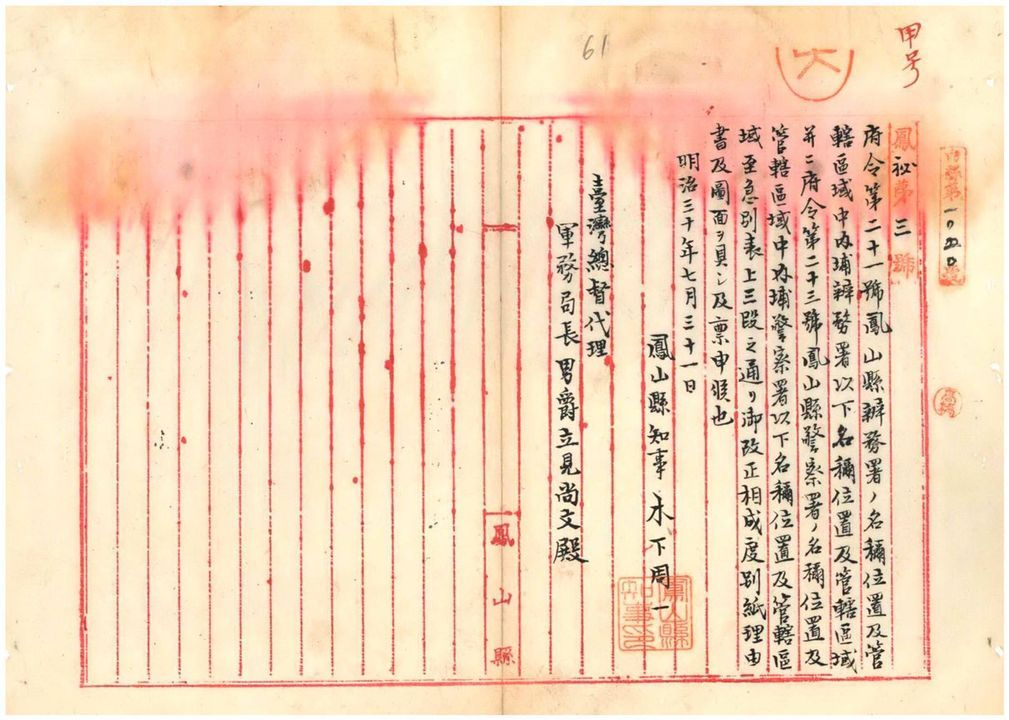 甲号
61
鳳秘第三號
府令第二十一號鳳山縣辦務署ノ名稱位置及管
轄區域中内埔辦務署以下名稱位置及管轄區域
并ニ府令第二十三號鳳山縣警察署ノ名稱位置及
管轄區域中内埔警察署以下名稱位置及管轄區
域至急別表上三段之通リ御改正相成度別紙理由
書及圖面ヲ具シ及禀申候也
明治三十年七月三十一日
鳳山縣知事木下周一
鳳山縣知事之印
臺灣總督代理
軍務局長男爵立見尚文殿
鳳山縣